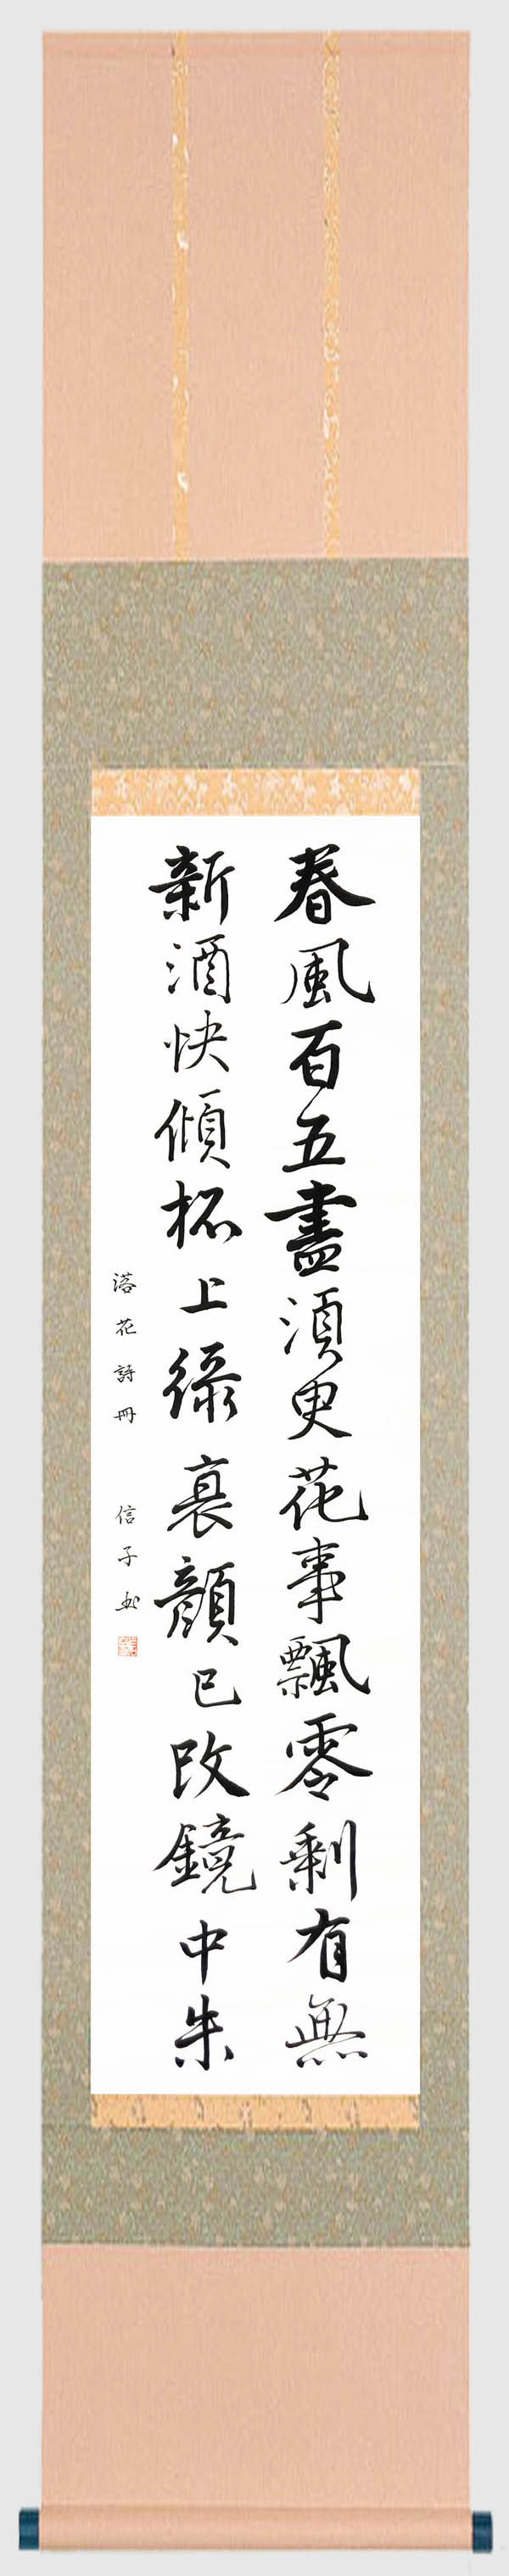 春風百五盡須臾花事飄零剩有無
新酒快傾杯上綠衰顏已改鏡中朱
落花詩冊 信子书